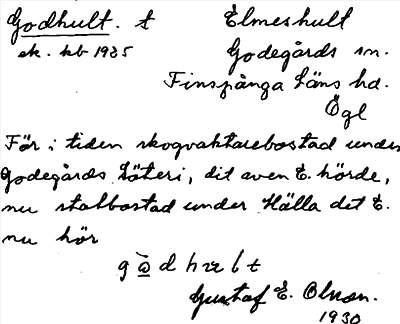 Godhult. t Elmeshult
ek. kb 1935 Godegårds sn.
Finspånga läns hd.
Ögl
Förr i tiden skogvaktarebostad under
Godegårds säteri, dit även E. hörde,
nu statbostad under Hälla det E.
nu hör
Gustaf E. Olson.
1930